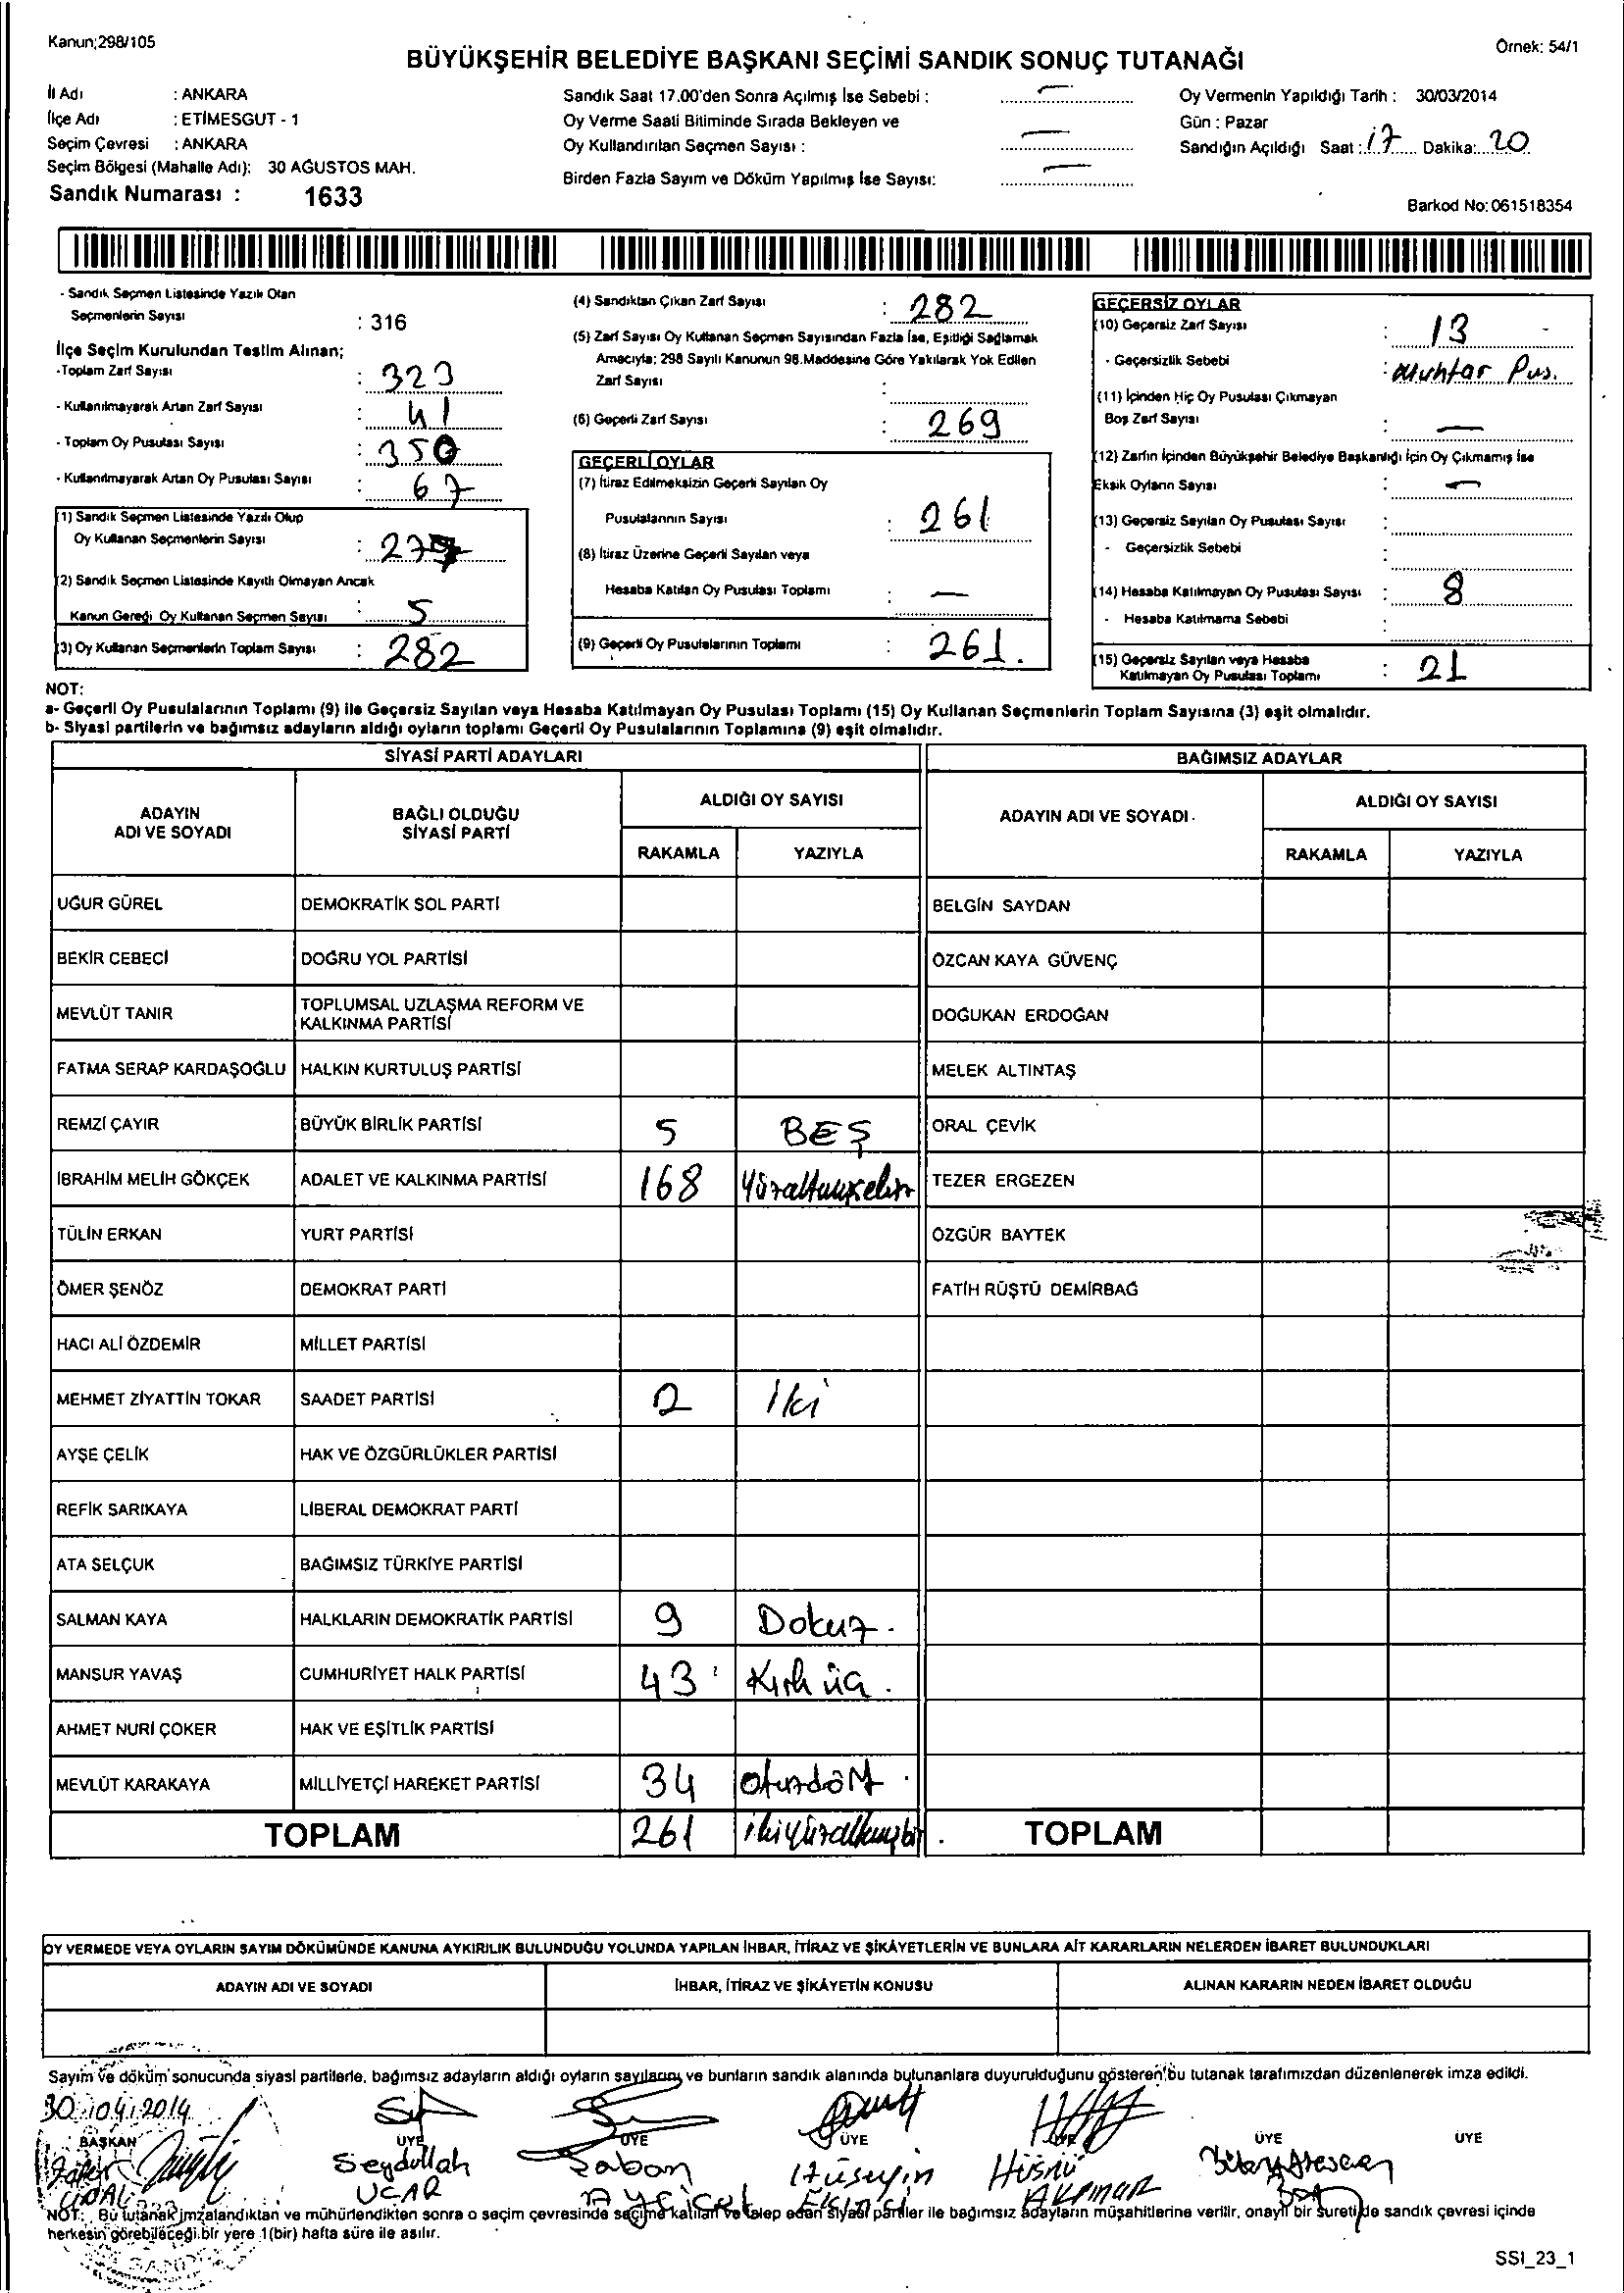 Kanun;298/105
Örnek: 54/1
BÜYÜKŞEHİR BELEDİYE BAŞKANI SEÇİMİ SANDIK SONUÇ TUTANAĞI
İl Adı : ANKARA
İlçe Adı : ETİMESGUT - 1
Seçim Çevresi : ANKARA
Seçim Bölgesi (Mahalle Adı): 30 AĞUSTOS MAH.
Sandık Numarası : 1633
Sandık Saat 17.00'den Sonra Açılmış İse Sebebi : —
Oy Verme Saati Bitiminde Sırada Bekleyen ve
Oy Kullandırılan Seçmen Sayısı : —
Birden Fazla Sayım ve Döküm Yapılmış İse Sayısı: —
Oy Vermenin Yapıldığı Tarih : 30/03/2014
Gün : Pazar
Sandığın Açıldığı Saat : 17 Dakika: 20
Barkod No:061518354
- Sandık Seçmen Listesinde Yazılı Olan
Seçmenlerin Sayısı : 316
İlçe Seçim Kurulundan Teslim Alınan;
-Toplam Zarf Sayısı : 323
- Kullanılmayarak Artan Zarf Sayısı : 41
- Toplam Oy Pusulası Sayısı : 350
- Kullanılmayarak Artan Oy Pusulası Sayısı : 67
(1) Sandık Seçmen Listesinde Yazılı Olup
Oy Kullanan Seçmenlerin Sayısı : 277
(2) Sandık Seçmen Listesinde Kayıtlı Olmayan Ancak
Kanun Gereği Oy Kullanan Seçmen Sayısı : 5
(3) Oy Kullanan Seçmenlerin Toplam Sayısı : 282
(4) Sandıktan Çıkan Zarf Sayısı : 282
(5) Zarf Sayısı Oy Kullanan Seçmen Sayısından Fazla İse, Eşitliği Sağlamak
Amacıyla; 298 Sayılı Kanunun 98.Maddesine Göre Yakılarak Yok Edilen
Zarf Sayısı :
(6) Geçerli Zarf Sayısı : 269
GEÇERLİ OYLAR
(7) İtiraz Edilmeksizin Geçerli Sayılan Oy
Pusulalarının Sayısı : 261
(8) İtiraz Üzerine Geçerli Sayılan veya
Hesaba Katılan Oy Pusulası Toplamı : —
(9) Geçerli Oy Pusulalarının Toplamı : 261.
GEÇERSİZ OYLAR
(10) Geçersiz Zarf Sayısı : 13 -
- Geçersizlik Sebebi : Muhtar Pus.
(11) İçinden Hiç Oy Pusulası Çıkmayan
Boş Zarf Sayısı : —
(12) Zarfın İçinden Büyükşehir Belediye Başkanlığı İçin Oy Çıkmamış İse
Eksik Oyların Sayısı : —
(13) Geçersiz Sayılan Oy Pusulası Sayısı :
- Geçersizlik Sebebi :
(14) Hesaba Katılmayan Oy Pusulası Sayısı : 8
- Hesaba Katılmama Sebebi :
(15) Geçersiz Sayılan veya Hesaba
Katılmayan Oy Pusulası Toplamı : 21
NOT:
a- Geçerli Oy Pusulalarının Toplamı (9) ile Geçersiz Sayılan veya Hesaba Katılmayan Oy Pusulası Toplamı (15) Oy Kullanan Seçmenlerin Toplam Sayısına (3) eşit olmalıdır.
b- Siyasi partilerin ve bağımsız adayların aldığı oyların toplamı Geçerli Oy Pusulalarının Toplamına (9) eşit olmalıdır.
SİYASİ PARTİ ADAYLARI BAĞIMSIZ ADAYLAR
ADAYIN ADI VE SOYADI BAĞLI OLDUĞU SİYASİ PARTİ ALDIĞI OY SAYISI ADAYIN ADI VE SOYADI ALDIĞI OY SAYISI
RAKAMLA YAZIYLA RAKAMLA YAZIYLA
UĞUR GÜREL DEMOKRATİK SOL PARTİ BELGİN SAYDAN
BEKİR CEBECİ DOĞRU YOL PARTİSİ ÖZCAN KAYA GÜVENÇ
MEVLÜT TANIR TOPLUMSAL UZLAŞMA REFORM VE KALKINMA PARTİSİ DOĞUKAN ERDOĞAN
FATMA SERAP KARDAŞOĞLU HALKIN KURTULUŞ PARTİSİ MELEK ALTINTAŞ
REMZİ ÇAYIR BÜYÜK BİRLİK PARTİSİ 5 BEŞ ORAL ÇEVİK
İBRAHİM MELİH GÖKÇEK ADALET VE KALKINMA PARTİSİ 168 Yüzaltmışsekiz TEZER ERGEZEN
TÜLİN ERKAN YURT PARTİSİ ÖZGÜR BAYTEK
ÖMER ŞENÖZ DEMOKRAT PARTİ FATİH RÜŞTÜ DEMİRBAĞ
HACI ALİ ÖZDEMİR MİLLET PARTİSİ
MEHMET ZİYATTİN TOKAR SAADET PARTİSİ 2 İki
AYŞE ÇELİK HAK VE ÖZGÜRLÜKLER PARTİSİ
REFİK SARIKAYA LİBERAL DEMOKRAT PARTİ
ATA SELÇUK BAĞIMSIZ TÜRKİYE PARTİSİ
SALMAN KAYA HALKLARIN DEMOKRATİK PARTİSİ 9 Dokuz.
MANSUR YAVAŞ CUMHURİYET HALK PARTİSİ 43 Kırk üç.
AHMET NURİ ÇOKER HAK VE EŞİTLİK PARTİSİ
MEVLÜT KARAKAYA MİLLİYETÇİ HAREKET PARTİSİ 34 otuzdört
TOPLAM 261 ikiyüzaltmışbir. TOPLAM
OY VERMEDE VEYA OYLARIN SAYIM DÖKÜMÜNDE KANUNA AYKIRILIK BULUNDUĞU YOLUNDA YAPILAN İHBAR, İTİRAZ VE ŞİKÂYETLERİN VE BUNLARA AİT KARARLARIN NELERDEN İBARET BULUNDUKLARI
ADAYIN ADI VE SOYADI İHBAR, İTİRAZ VE ŞİKÂYETİN KONUSU ALINAN KARARIN NEDEN İBARET OLDUĞU
Sayım ve döküm sonucunda siyasi partilerle, bağımsız adayların aldığı oyların sayılarını ve bunların sandık alanında bulunanlara duyurulduğunu gösteren bu tutanak tarafımızdan düzenlenerek imza edildi.
30.04.2014
BAŞKAN ÜYE ÜYE ÜYE ÜYE ÜYE ÜYE
Seydullah Şaban Hüseyin Hüsnü
UÇAR AYÇİÇEK AKPINAR
NOT: Bu tutanak imzalandıktan ve mühürlendikten sonra o seçim çevresinde seçime katılan ve talep eden siyasi partiler ile bağımsız adayların müşahitlerine verilir, onaylı bir sureti de sandık çevresi içinde
herkesin görebileceği bir yere 1(bir) hafta süre ile asılır.
SSI_23_1